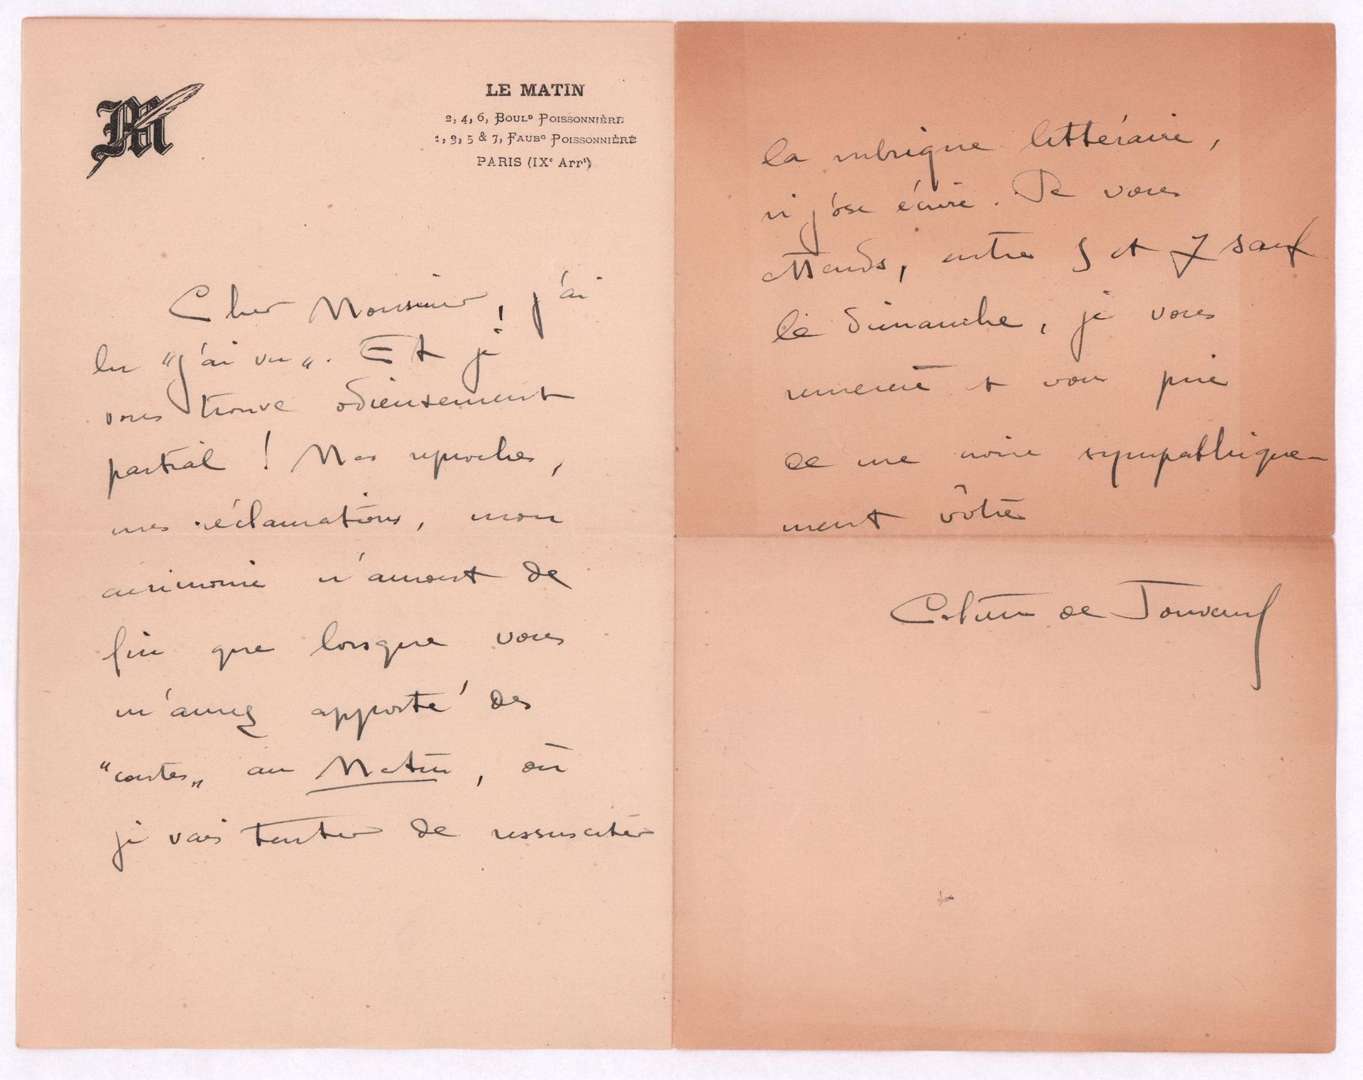 M
LE MATIN
2, 4, 6, Boulᵈ Poissonnière
1, 3, 5 & 7, Faubᵍ Poissonnière
PARIS (IXᵉ Arrᵗ)
Cher Monsieur, j'ai
lu "j'ai vu". Et je
vous trouve odieusement
partial ! Mes reproches,
mes réclamations, mon
acrimonie n'auront de
fin que lorsque vous
m'aurez apporté des
"contes" au Matin, où
je vais tenter de ressusciter
la rubrique littéraire,
si j'ose écrire. Je vous
attends, entre 5 et 7 sauf
le dimanche, je vous
remercie et vous prie
de me croire sympathique-
ment vôtre
Colette de Jouvenel